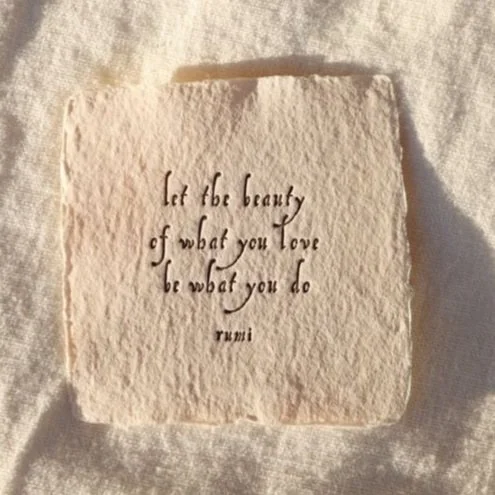 let the beauty
of what you love
be what you do
rumi